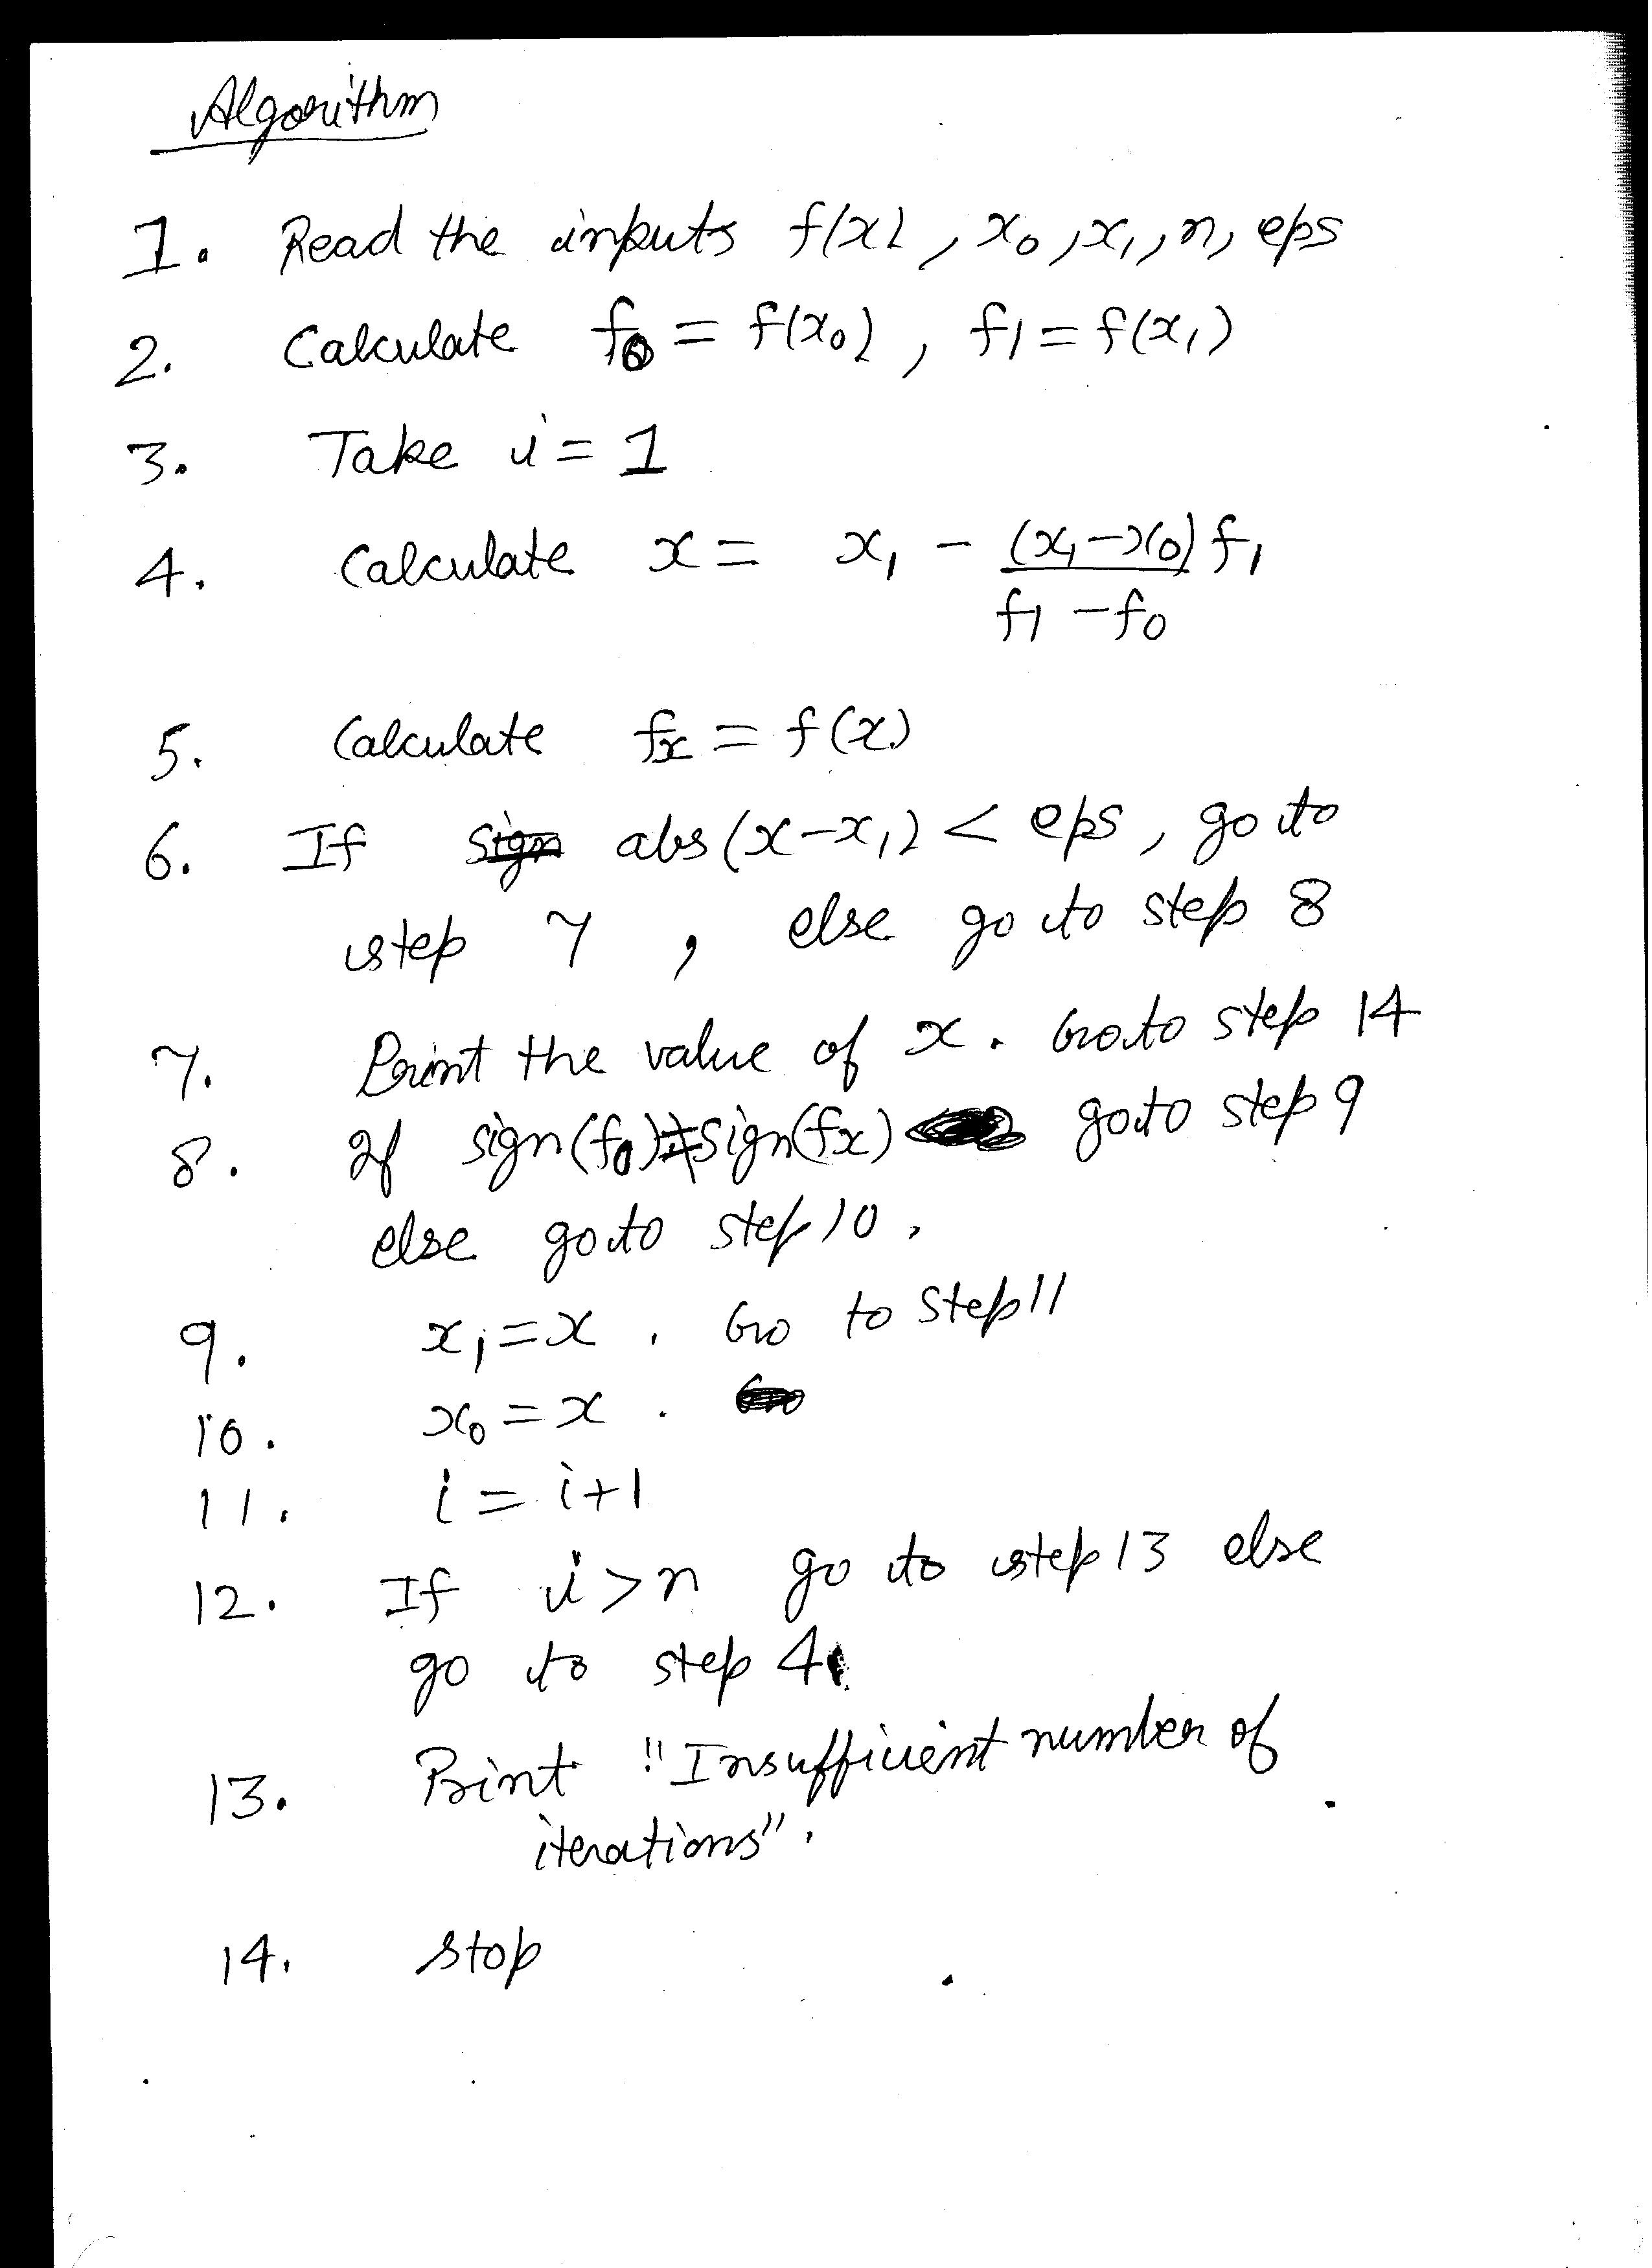 Algorithm
1. Read the inputs f(x), x₀, x₁, n, eps
2. Calculate f₀ = f(x₀), f1 = f(x₁)
3. Take i = 1
4. Calculate x = x₁ - (x₁-x₀)f₁
f1 - f₀
5. Calculate fx = f(x)
6. If abs(x-x₁) < eps, go to
step 7, else go to step 8
7. Print the value of x. Go to step 14
8. If sign(f₀)≠sign(fx) go to step 9
else go to step 10.
9. x₁=x. Go to step 11
10. x₀ = x.
11. i = i+1
12. If i>n go to step 13 else
go to step 4.
13. Print "Insufficient number of
iterations".
14. Stop